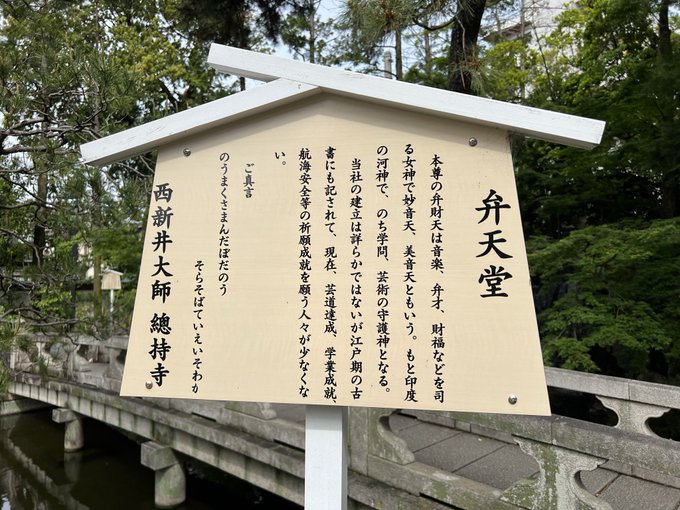 弁天堂
本尊の弁財天は音楽、弁才、財福などを司
る女神で妙音天、美音天ともいう。もと印度
の河神で、のち学問、芸術の守護神となる。
当社の建立は詳らかではないが江戸期の古
書にも記されて、現在、芸道達成、学業成就、
航海安全等の祈願成就を願う人々が少なくな
い。
ご真言
のうまくさまんだぼだのう
そらそばていえいそわか
西新井大師 總持寺